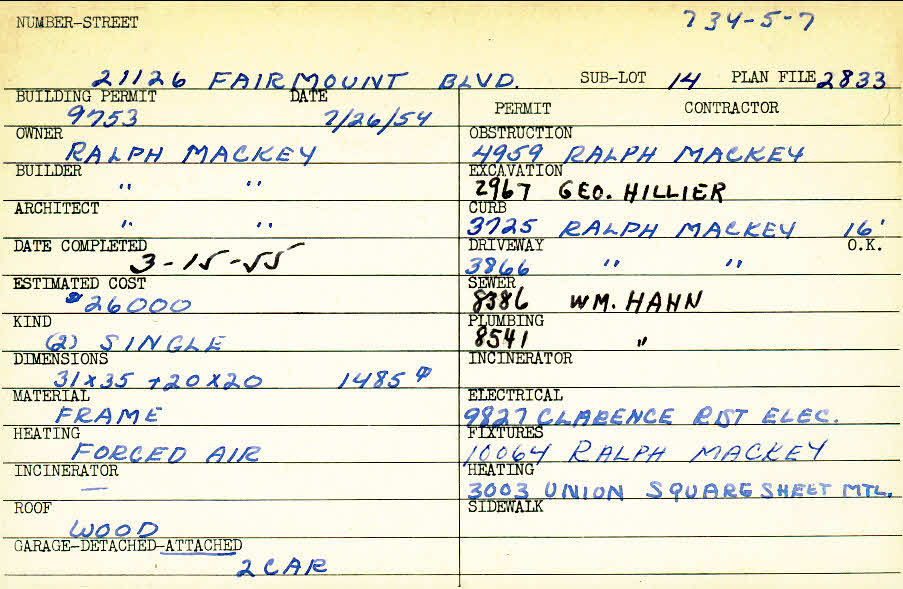 NUMBER-STREET 734-5-7
21126 FAIRMOUNT BLVD. SUB-LOT 14 PLAN FILE 2833
BUILDING PERMIT DATE
9753 7/26/54
OWNER
RALPH MACKEY
BUILDER
" "
ARCHITECT
" "
DATE COMPLETED
3-15-55
ESTIMATED COST
$26000
KIND
(2) SINGLE
DIMENSIONS
31x35 +20x20 1485
MATERIAL
FRAME
HEATING
FORCED AIR
INCINERATOR
—
ROOF
WOOD
GARAGE-DETACHED-ATTACHED
2 CAR
PERMIT CONTRACTOR
OBSTRUCTION
4959 RALPH MACKEY
EXCAVATION
2967 GEO. HILLIER
CURB
3725 RALPH MACKEY 16'
DRIVEWAY O.K.
3866 " "
SEWER
8386 WM. HAHN
PLUMBING
8541 "
INCINERATOR
ELECTRICAL
9827 CLARENCE RDT ELEC.
FIXTURES
10064 RALPH MACKEY
HEATING
3003 UNION SQUARE SHEET MTL.
SIDEWALK